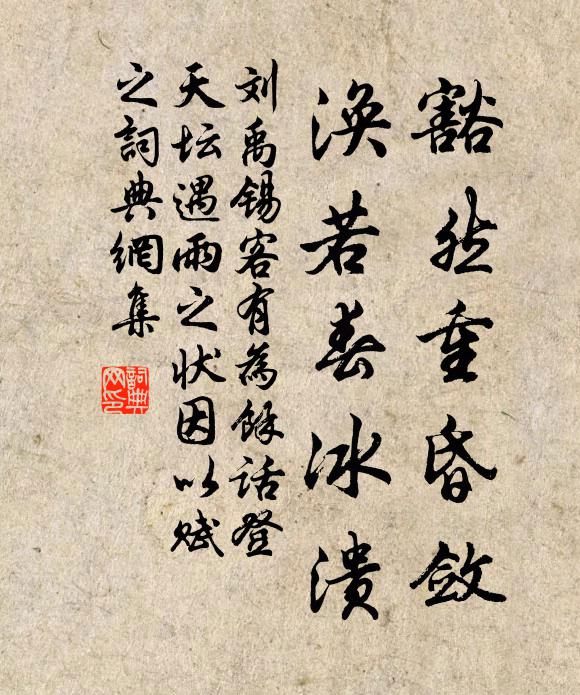 豁然重昏敛
渙若春冰溃
刘禹锡客有為餘话登
天坛遇雨之状因以赋
之詞典網集
詞典
网印